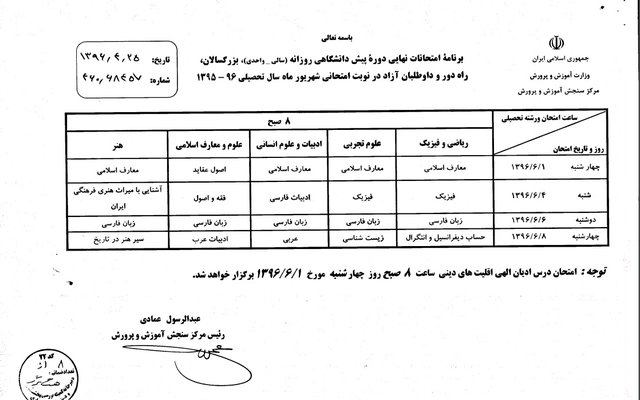 باسمه تعالی
جمهوری اسلامی ایران
وزارت آموزش و پرورش
مرکز سنجش آموزش و پرورش
برنامهٔ امتحانات نهایی دورهٔ پیش دانشگاهی روزانه (سالی _ واحدی)، بزرگسالان،
راه دور و داوطلبان آزاد در نوبت امتحانی شهریور ماه سال تحصیلی ۹۶ - ۱۳۹۵
تاریخ: ۱۳۹۶,۴,۲۵
شماره:
ساعت امتحان ورشته تحصیلی
روز و تاریخ امتحان
۸ صبح
ریاضی و فیزیک علوم تجربی ادبیات و علوم انسانی علوم و معارف اسلامی هنر
چهار شنبه ۱۳۹۶/۶/۱ معارف اسلامی معارف اسلامی معارف اسلامی اصول عقاید معارف اسلامی
شنبه ۱۳۹۶/۶/۴ فیزیک فیزیک ادبیات فارسی فقه و اصول آشنایی با میراث هنری فرهنگی
ایران
دوشنبه ۱۳۹۶/۶/۶ زبان فارسی زبان فارسی زبان فارسی زبان فارسی زبان فارسی
چهارشنبه ۱۳۹۶/۶/۸ حساب دیفرانسیل و انتگرال زیست شناسی عربی ادبیات عرب سیر هنر در تاریخ
توجه : امتحان درس ادیان الهی اقلیت های دینی ساعت ۸ صبح روز چهارشنبه مورخ ۱۳۹۶/۶/۱ برگزار خواهد شد.
عبدالرسول عمادی
رئیس مرکز سنجش آموزش و پرورش
کد ۲۲
تعداد ضمائم: